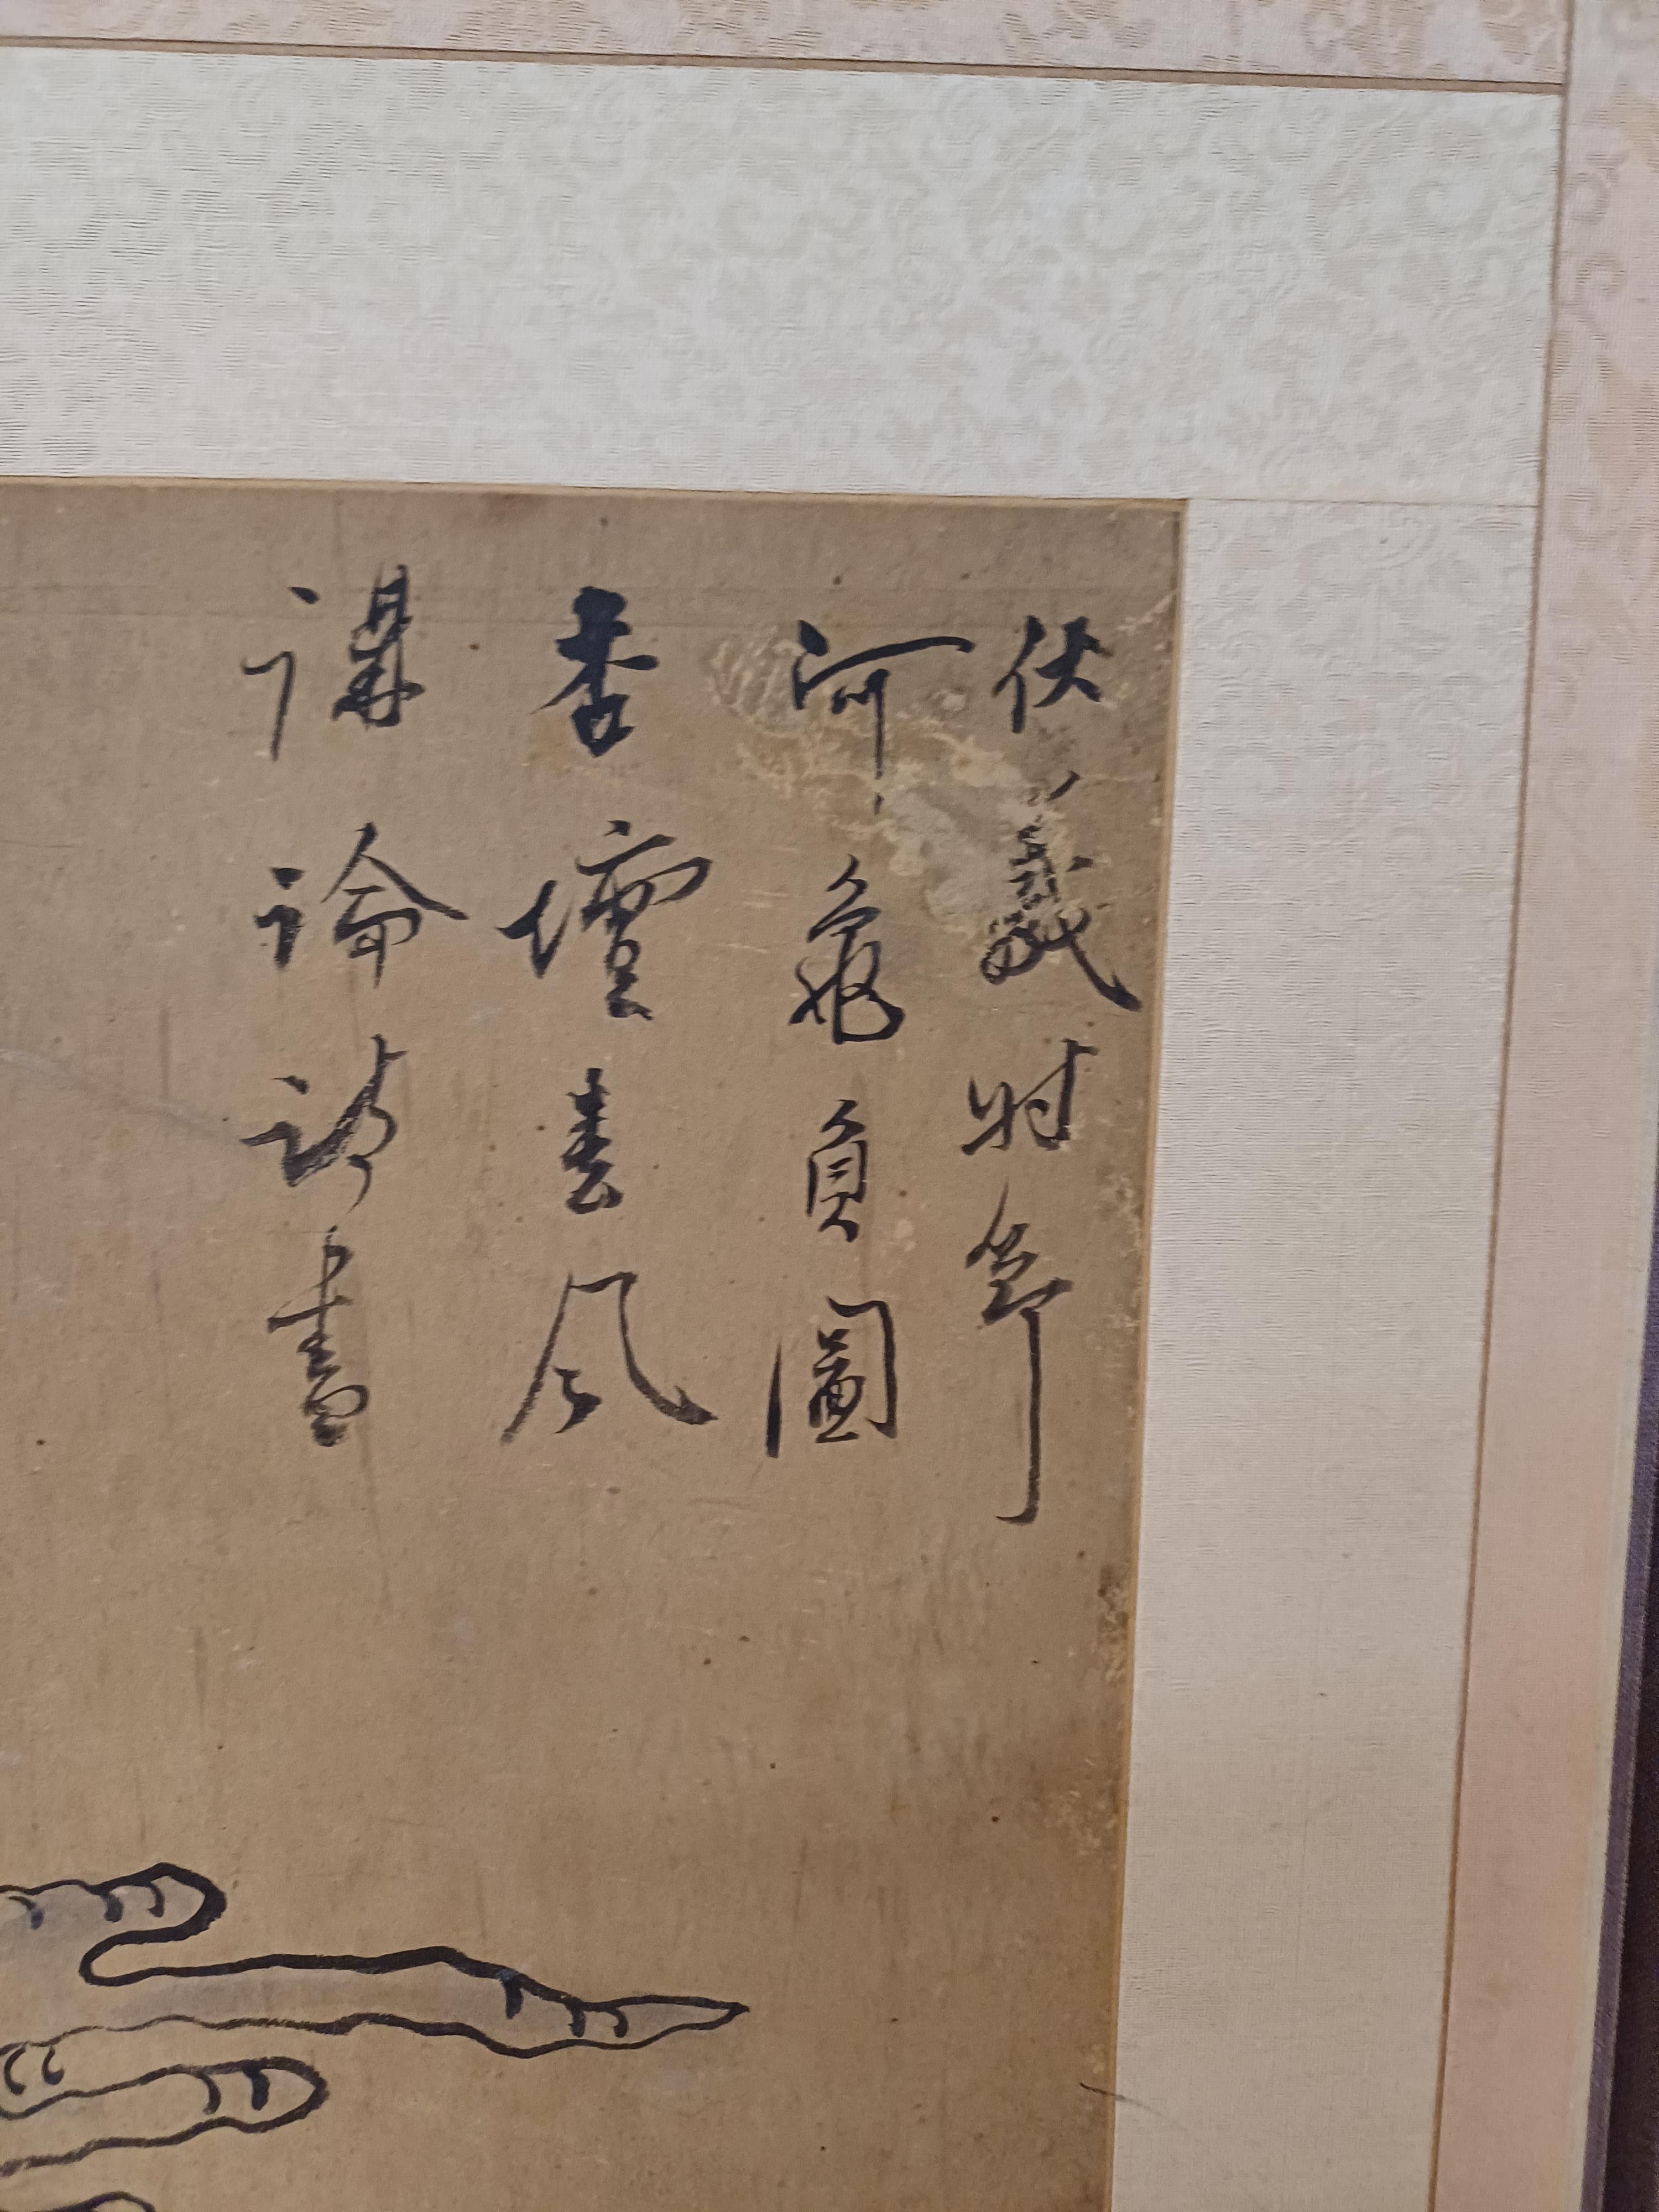 伏羲時節
河龜負圖
杏壇春風
講論詩書